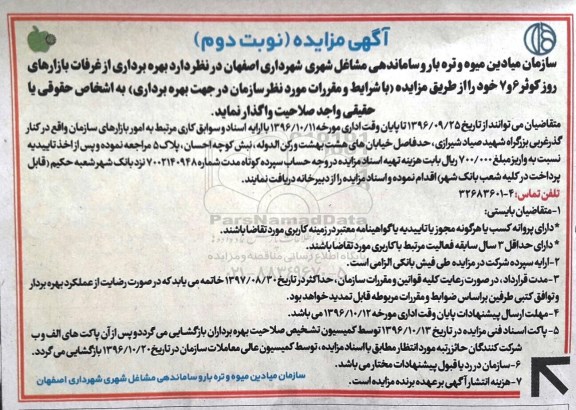 آگهی مزایده (نوبت دوم)
سازمان میادین میوه و تره بار و ساماندهی مشاغل شهری شهرداری اصفهان در نظر دارد بهره برداری از غرفات بازارهای
روز کوثر ۶و۷ خود را از طریق مزایده (با شرایط و مقررات مورد نظر سازمان در جهت بهره برداری) به اشخاص حقوقی یا
حقیقی واجد صلاحیت واگذار نماید.
متقاضیان می توانند از تاریخ ۱۳۹۶/۰۹/۲۵ تا پایان وقت اداری مورخه ۱۳۹۶/۱۰/۱۱ با ارایه اسناد و سوابق کاری مرتبط به امور بازارهای سازمان واقع در کنار
گذر غربی بزرگراه شهید صیاد شیرازی، حدفاصل خیابان های هشت بهشت و رکن الدوله، نبش کوچه احسان، پلاک ۵ مراجعه نموده و پس از اخذ تاییدیه
نسبت به واریز مبلغ ۷۰۰/۰۰۰ ریال بابت هزینه تهیه اسناد مزایده در وجه حساب سپرده کوتاه مدت شماره ۷۰۰۲۱۴۰۹۴۸ نزد بانک شهر شعبه حکیم (قابل
پرداخت در کلیه شعب بانک شهر) اقدام نموده و اسناد مزایده را از دبیرخانه دریافت نمایند.
تلفن تماس: ۴-۳۲۶۸۳۶۰۱
۱-متقاضیان بایستی:
* دارای پروانه کسب یا هرگونه مجوز یا تاییدیه یا گواهینامه معتبر در زمینه کاربری مورد تقاضا باشند.
* دارای حداقل ۳ سال سابقه فعالیت مرتبط با کاربری مورد تقاضا باشند.
۲-ارایه سپرده شرکت در مزایده طی فیش بانکی الزامی است.
۳-مدت قرارداد، در صورت رعایت کلیه قوانین و مقررات سازمان، حداکثر در تاریخ ۱۳۹۷/۰۸/۳۰ خاتمه می یابد که در صورت رضایت از عملکرد بهره بردار
و توافق کتبی طرفین بر اساس ضوابط و مقررات مربوطه قابل تمدید خواهد بود.
۴-مهلت ارسال پیشنهادات پایان وقت اداری مورخه ۱۳۹۶/۱۰/۱۲ می باشد.
۵-پاکت اسناد فنی مزایده در تاریخ ۱۳۹۶/۱۰/۱۳ توسط کمیسیون تشخیص صلاحیت بهره برداران بازگشایی می گردد و پس از آن پاکت های الف و ب
شرکت کنندگان حائز رتبه مورد انتظار مطابق با اسناد مزایده، توسط کمیسیون عالی معاملات سازمان در تاریخ ۱۳۹۶/۱۰/۲۰ بازگشایی می گردد.
۶-سازمان در رد یا قبول پیشنهادات مختار می باشد.
۷-هزینه انتشار آگهی بر عهده برنده مزایده است.
سازمان میادین میوه و تره بار و ساماندهی مشاغل شهری شهرداری اصفهان
ParsNamadData
پایگاه اطلاع رسانی مناقصه و مزایده
۰۲۱-۸۸۳۴۹۶۷۰-۵